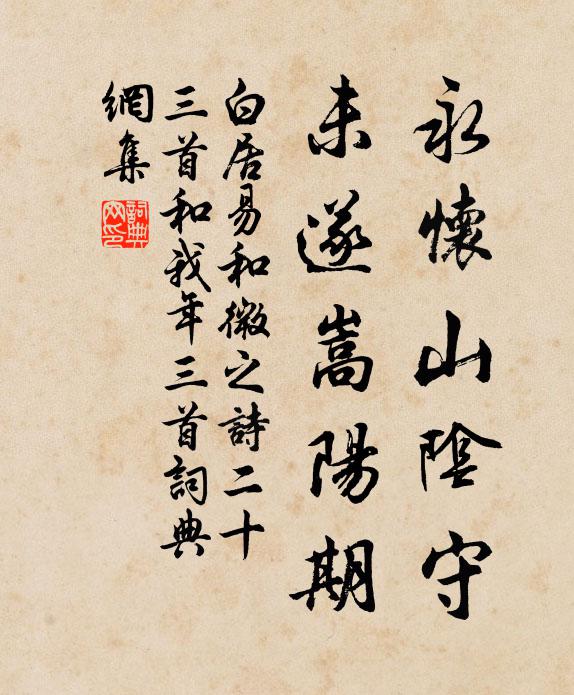 永懷山陰守
未遂嵩陽期
白居易和微之詩二十
三首和我年三首詞典
網集
詞典
网印